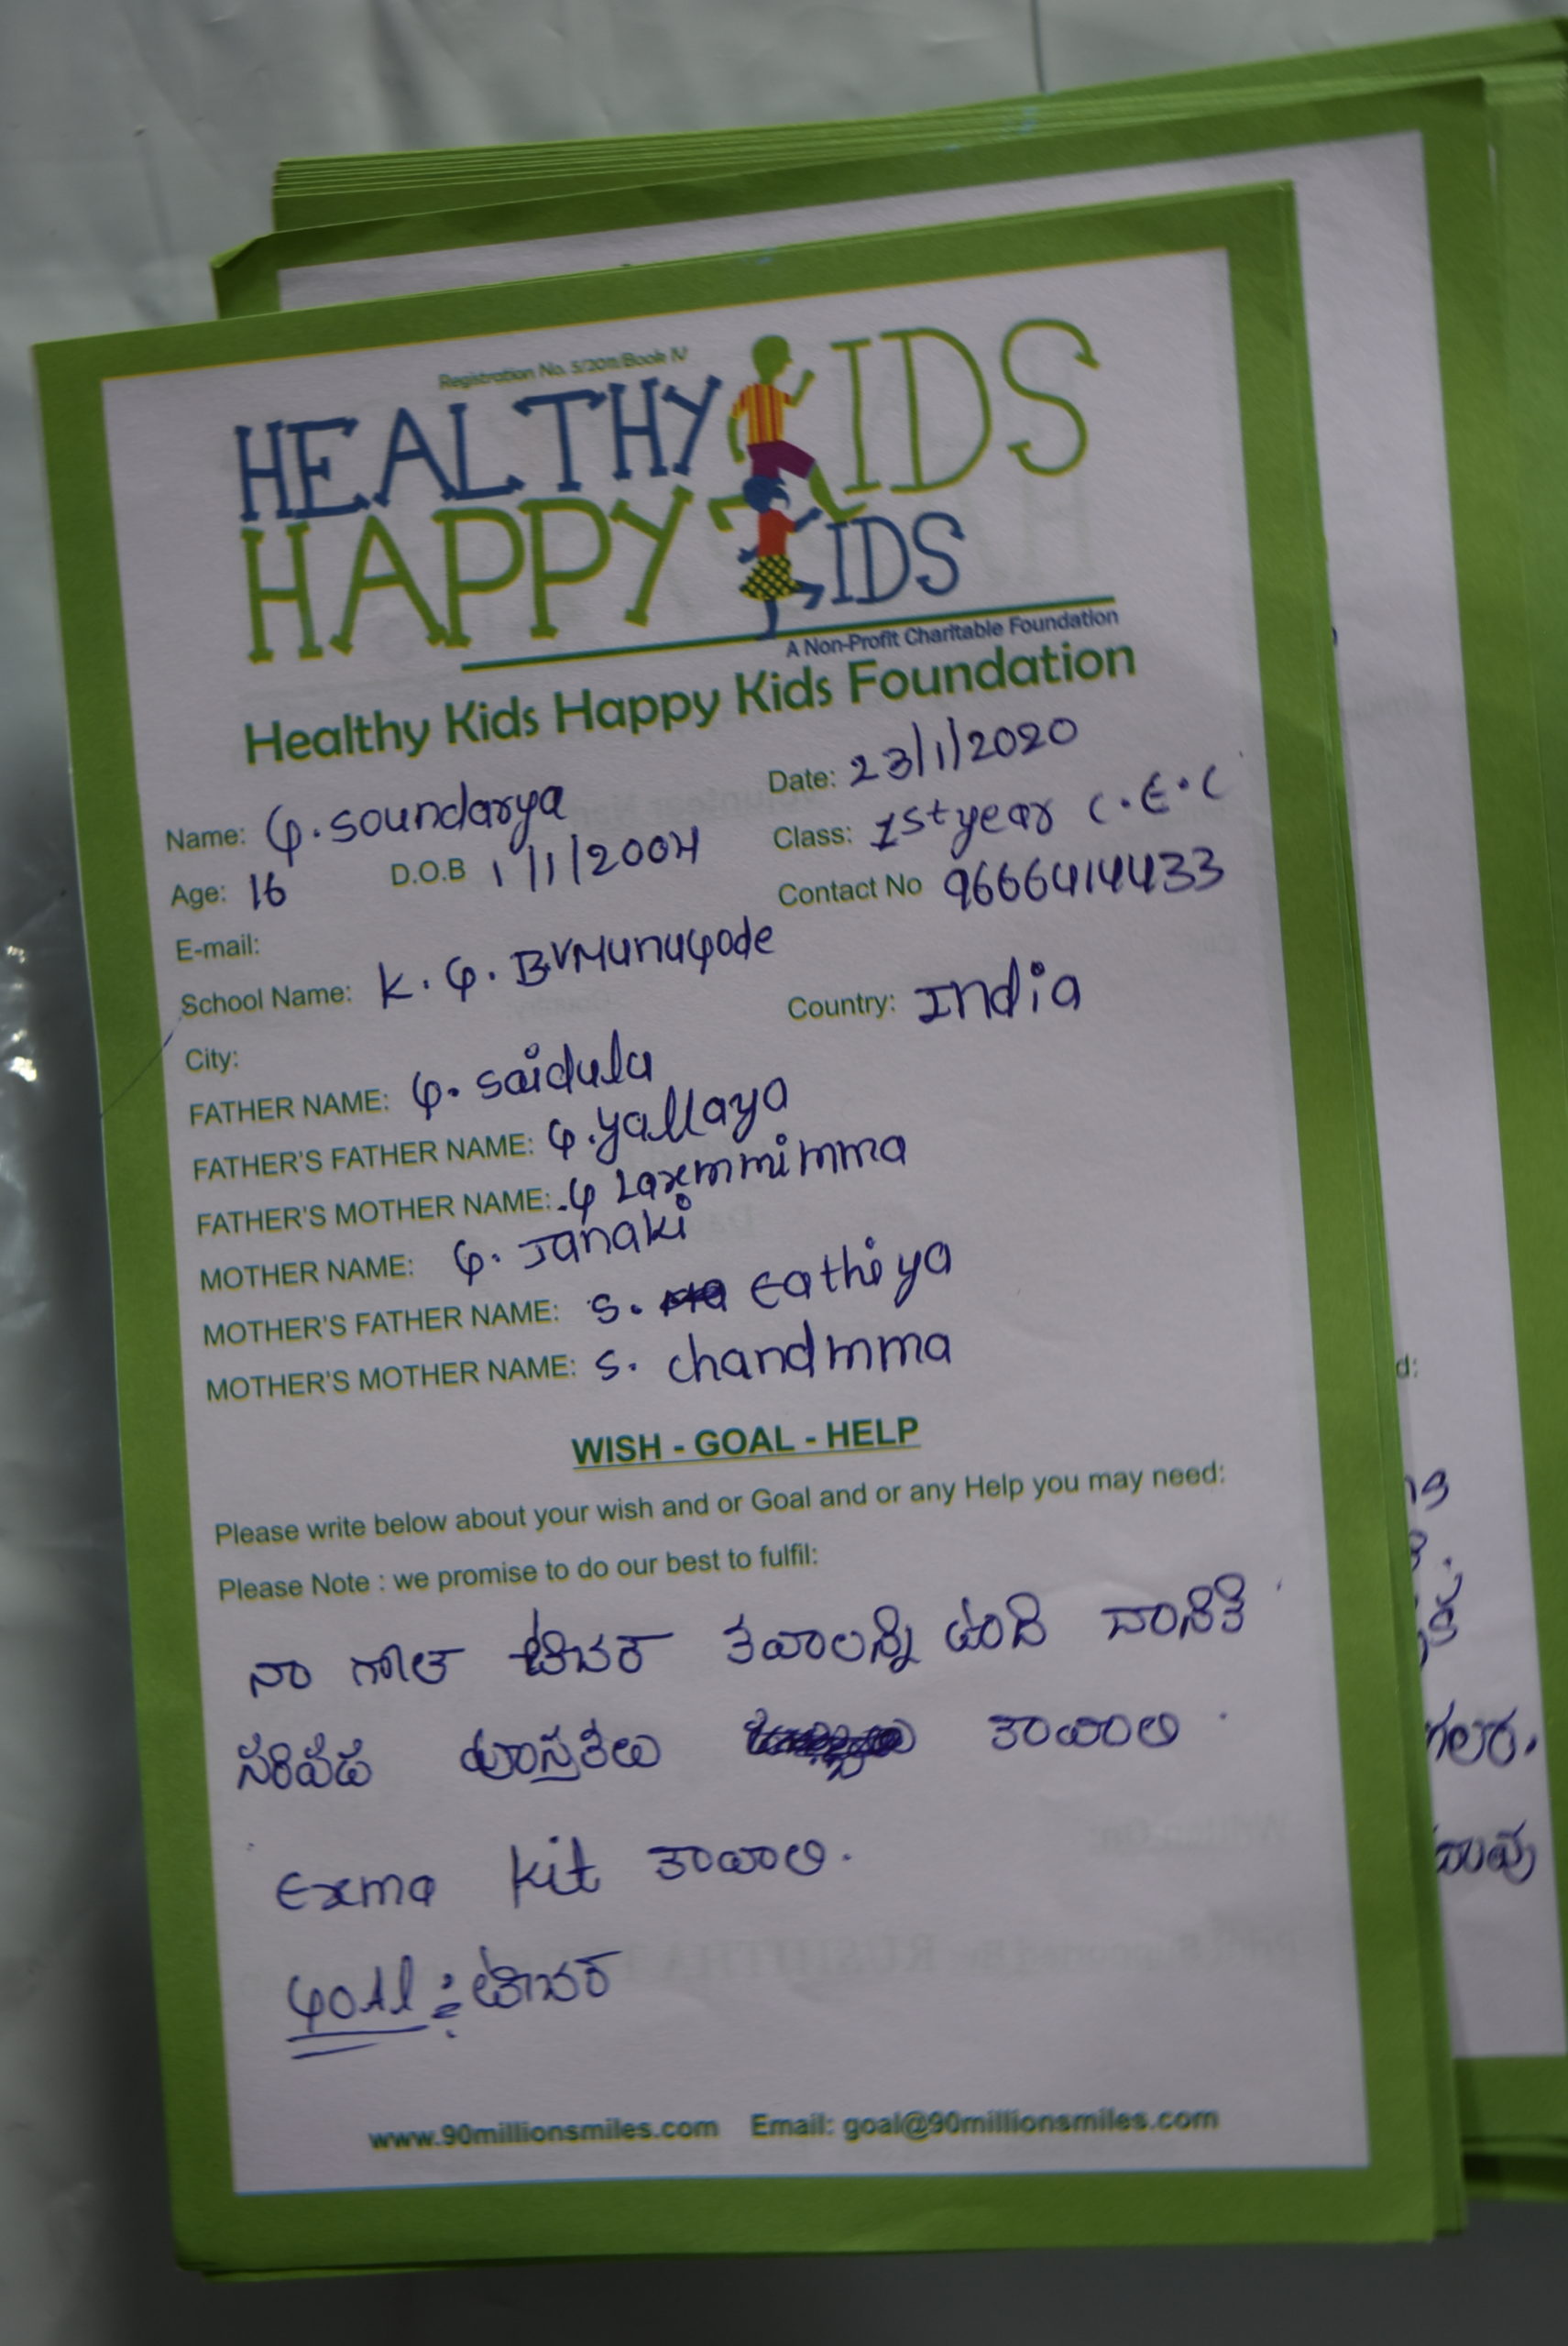 Registration No. 5/2011/Book IV
HEALTHY KIDS
HAPPY KIDS
A Non-Profit Charitable Foundation
Healthy Kids Happy Kids Foundation
Date: 23/1/2020
Name: G. soundarya
Class: 1st year C.E.C
Age: 16 D.O.B 1/1/2004
Contact No 9666414433
E-mail:
School Name: K. G. B.V Munugode
Country: India
City:
FATHER NAME: G. saidulu
FATHER'S FATHER NAME: G. yallaya
FATHER'S MOTHER NAME: G Laxmmimma
MOTHER NAME: G. Janaki
MOTHER'S FATHER NAME: S. Eathiya
MOTHER'S MOTHER NAME: S. chandmma
WISH - GOAL - HELP
Please write below about your wish and or Goal and or any Help you may need:
Please Note : we promise to do our best to fulfil:
నా గోల్ టీచర్ కావాలన్ని ఉంది దానికి
సరిపడ పూస్తకలు కావాలి
Exma kit కావాలి.
GOAl : టీచర్
www.90millionsmiles.com Email: goal@90millionsmiles.com
d: